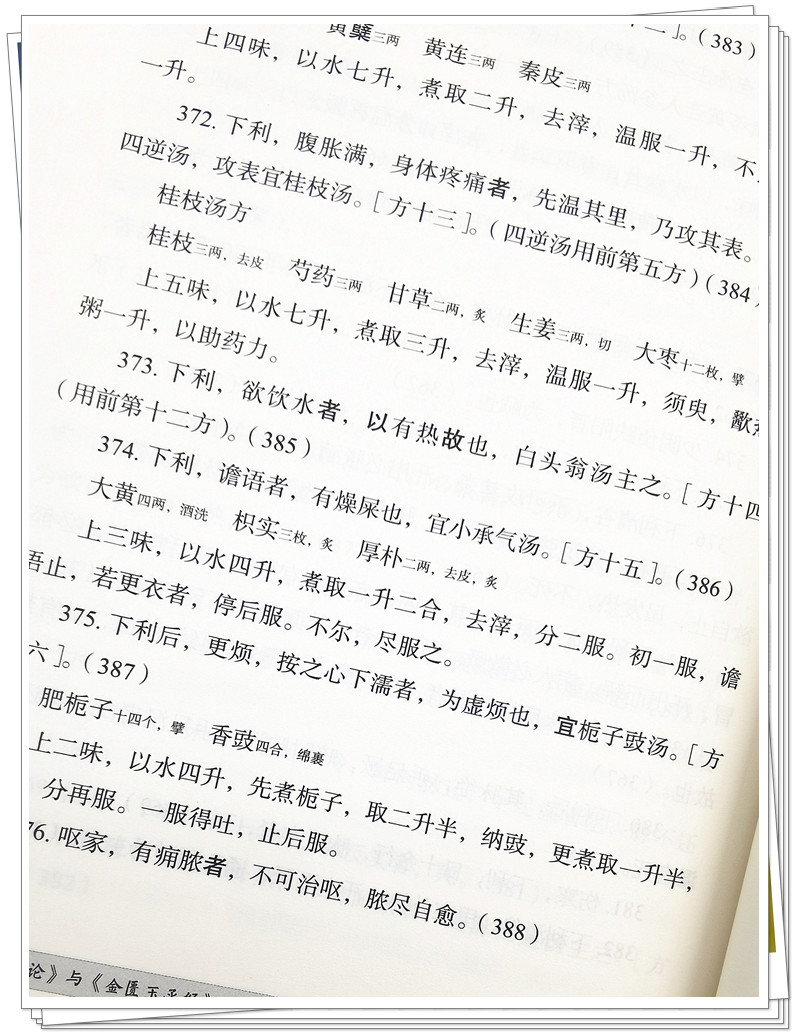 二]。(383)
黄檗三两 黄连三两 秦皮三两
上四味，以水七升，煮取二升，去滓，温服一升，不
一升。
372. 下利，腹胀满，身体疼痛者，先温其里，乃攻其表。
四逆汤，攻表宜桂枝汤。[方十三]。(四逆汤用前第五方)(384)
桂枝汤方
桂枝三两，去皮 芍药三两 甘草二两，炙 生姜三两，切 大枣十二枚，擘
上五味，以水七升，煮取三升，去滓，温服一升，须臾，歠
粥一升，以助药力。
373. 下利，欲饮水者，以有热故也，白头翁汤主之。[方十四
(用前第十二方)。(385)
374. 下利，谵语者，有燥屎也，宜小承气汤。[方十五]。(386)
大黄四两，酒洗 枳实三枚，炙 厚朴二两，去皮，炙
上三味，以水四升，煮取一升二合，去滓，分二服。初一服，谵
语止，若更衣者，停后服。不尔，尽服之。
375. 下利后，更烦，按之心下濡者，为虚烦也，宜栀子豉汤。[方
六]。(387)
肥栀子十四个，擘 香豉四合，绵裹
上二味，以水四升，先煮栀子，取二升半，纳豉，更煮取一升半，
分再服。一服得吐，止后服。
76. 呕家，有痈脓者，不可治呕，脓尽自愈。(388)
论》与《金匮玉函经》